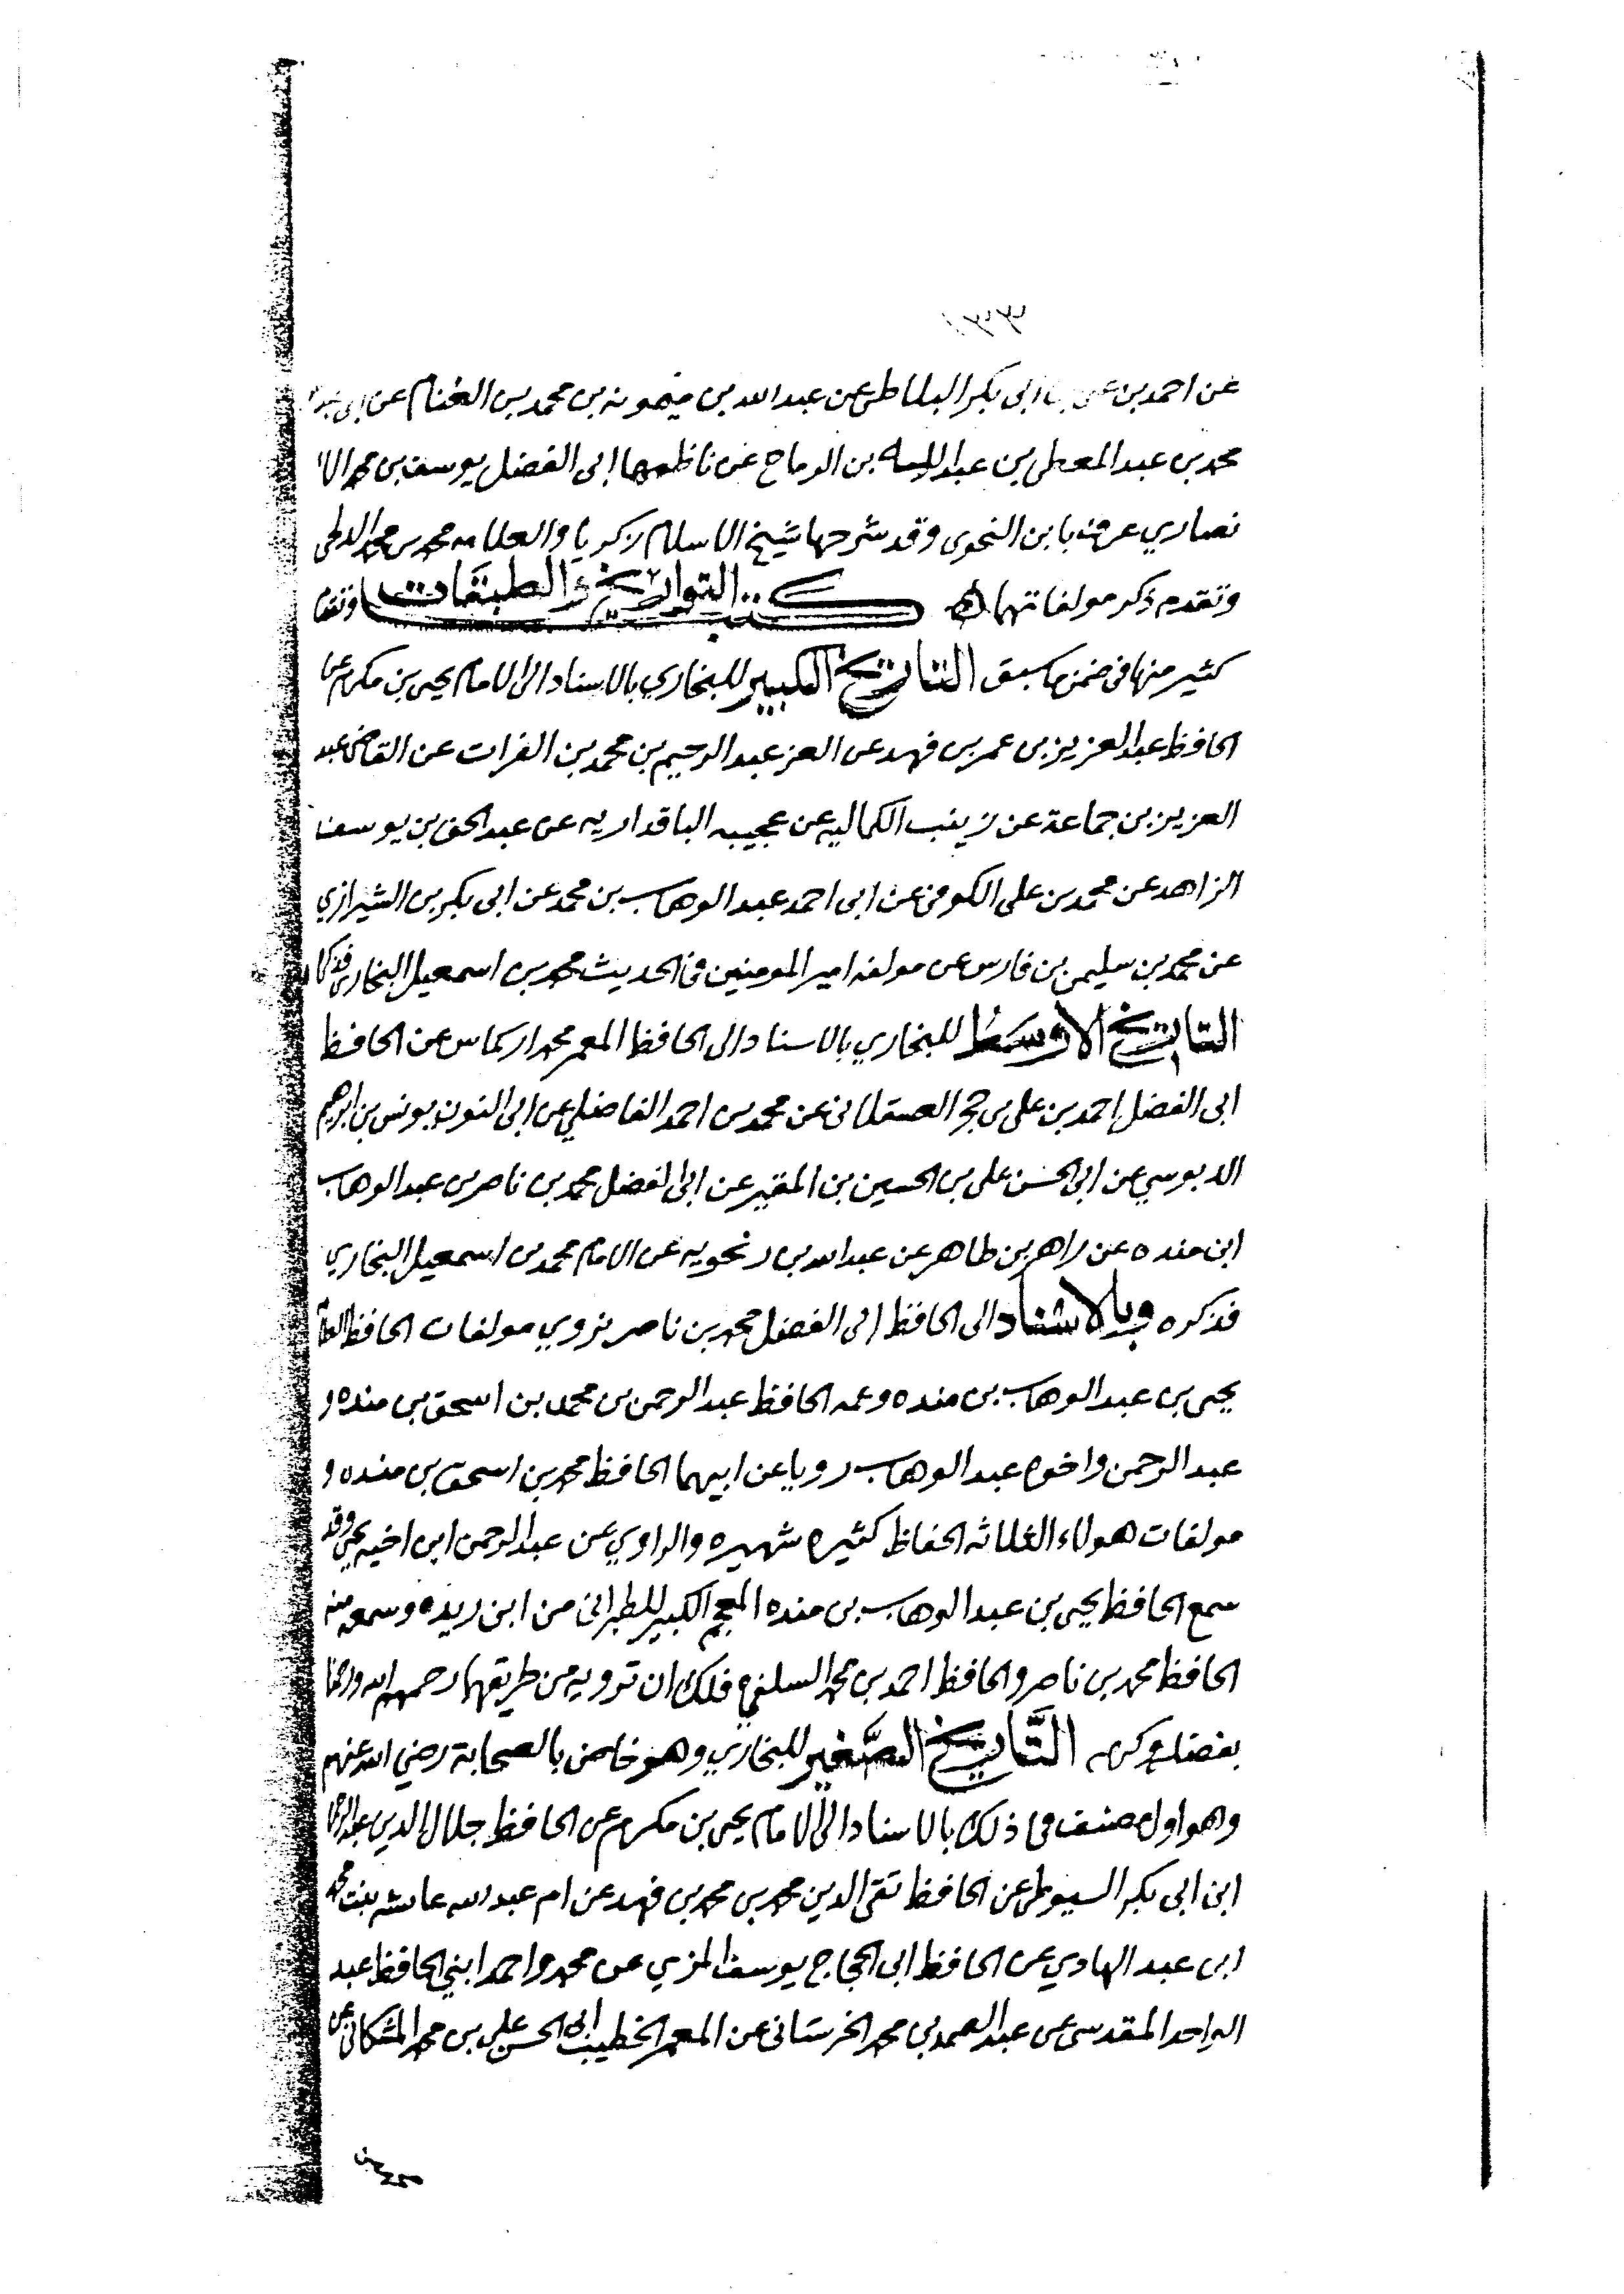 ١٣٣
عن احمد بن ابى بكر البلاطى عن عبد الله بن ميمونه بن محمد بن الغنام عن ابى
محمد بن عبد المعطى بن عبد الله بن الرماح عن ناظمها ابى الفضل يوسف بن محمد الا
نصاري عرف بابن النحوى وقد شرحها شيخ الاسلام زكريا والعلامه محمد بن محمد الدلجى
وتقدم ذكر مولفاتهما كتب التواريخ والطبقات وتقدم
كثير منها فى ضمن ما سبق التاريخ الكبير للبخاري بالاسناد الى الامام يحيى بن مكرم عن
الحافظ عبد العزيز بن عمر بن فهد عن العز عبد الرحيم بن محمد بن الفرات عن القاضى عبد
العزيز بن جماعة عن زينب الكماليه عن عجيبه الباقداريه عن عبد الحق بن يوسف
الزاهد عن محمد بن على الكوفى عن ابى احمد عبد الوهاب بن محمد عن ابى بكر بن الشيرازي
عن محمد بن سليمن بن فارس عن مولفه امير المومنين فى الحديث محمد بن اسمعيل البخارى فذكره
التاريخ الاوسط للبخاري بالاسناد الى الحافظ المعمر محمد اركماس عن الحافظ
ابى الفضل احمد بن على بن حجر العسقلانى عن محمد بن احمد الفاضلي عن ابى النون يونس بن ابرهيم
الدبوسي عن ابى الحسن على بن الحسين بن المقير عن ابى الفضل محمد بن ناصر بن عبد الوهاب
ابن منده عن زاهر بن طاهر عن عبد الله بن زنجويه عن الامام محمد بن اسمعيل البخاري
فذكره وبالاسناد الى الحافظ ابى الفضل محمد بن ناصر نروي مولفات الحافظ
يحيى بن عبد الوهاب بن منده وعمه الحافظ عبد الرحمن بن محمد بن اسحق بن منده و
عبد الرحمن واخوه عبد الوهاب رويا عن ابيهما الحافظ محمد بن اسحق بن منده و
مولفات هولاء الثلاثه الحفاظ كثيره شهيره والراوي عن عبد الرحمن ابن اخيه يحيى وقد
سمع الحافظ يحيى بن عبد الوهاب بن منده المعجم الكبير للطبرانى من ابن ريذه وسمعه منه
الحافظ محمد بن ناصر والحافظ احمد بن محمد السلفي فلك ان ترويه من طريقهما رحمهم الله ورحمنا
بفضله وكرمه التَّاريخ الصَّغير للبخاري وهو خاص بالصحابة رضي الله عنهم
وهو اول مصنف فى ذلك بالاسناد الى الامام يحيى بن مكرم عن الحافظ جلال الدين عبد الرحمن
ابن ابى بكر السيوطى عن الحافظ تقى الدين محمد بن محمد بن فهد عن ام عبد الله عائشه بنت محمد
ابن عبد الهادي عن الحافظ ابى الحجاج يوسف المزي عن محمد واحمد ابني الحافظ عبد
الواحد المقدسى عن عبد الصمد بن محمد الخرستانى عن المعمر الخطيب ابى الحسن على بن محمد المشكانى عن